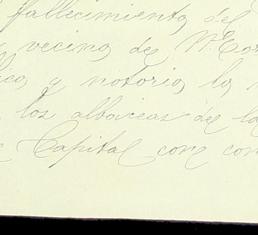 fallecimiento del
vecino de
y notorio la
los albaceas de la
Capital con con